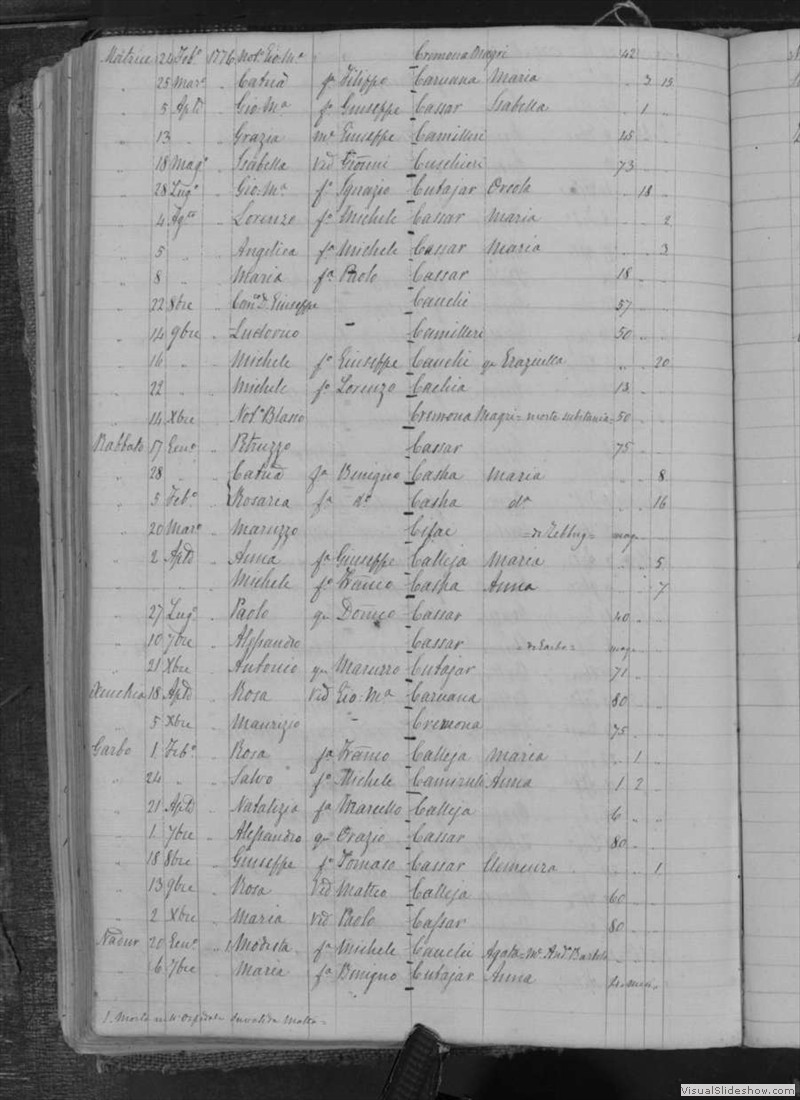 Matrice 24 Feb.o 1776 Not.o Gio M.a " Cremona Magri 42 " "
" 25 Mar.o " Catna f.a Filippo Caruana Maria " 3 15
" 5 Aple " Gio M.a f.o Giuseppe Cassar Isabella " 1 "
" 13 " " Grazia m.e Giuseppe Camilleri 45 " "
" 18 Mag.o " Isabella vid Gionni Cuschieri 73 " "
" 28 Lug.o " Gio. M.a f.o Ignazio Cutajar Orsola " 18 "
" 4 Ag.to " Lorenzo f.o Michele Cassar Maria " " 2
" 5 " " Angelica f.a Michele Cassar Maria " " 3
" 8 " " Maria f.a Paolo Cassar 18 " "
" 22 8bre " Can.o D. Giuseppe Cauchi 57 " "
" 14 9bre " Ludovico - Camilleri 50 " "
" 16 " " Michele f.o Giuseppe Cauchi q.m Graziulla " " 20
" 22 " Michele f.o Lorenzo Cachia 13 " "
" 14 Xbre " Not.o Blasso Cremona Magri = morte subitanea = 50 " "
Rabbato 17 Gen.o " Petruzzo Cassar 75 " "
" 28 " " Catna f.a Benigno Casha Maria " " 8
" 5 Feb.o " Rosaria f.a d.o Casha d.a " " 16
" 20 Mar.o " Maruzzo Cifai = di Zebbug = mag. " "
" 2 Aple " Anna f.a Giuseppe Calleja Maria " " 5
" " Michele f.o Franco Casha Anna " " 7
" 27 Lug.o " Paolo q.m Domco Cassar 40 " "
" 10 7bre " Alessandro Cassar = di Garbo = mag. "
" 21 Xbre " Antonio q.m Maruzzo Cutajar 71 " "
Xeuchia 18 Aple " Rosa vid Gio: M.a Caruana 80 " "
" 5 Xbre " Maurizio - Cremona 75 " "
Garbo 1 Feb.o " Rosa f.a Franco Calleja Maria " 1 "
" 24 " " Salvo f.o Michele Anna 1 2 "
" 21 Aple " Natalizia f.a Marcello Calleja 6 " "
" 1 7bre " Alessandro q.m Orazio Cassar 80 " "
" 18 8bre " Giuseppe f.o Tomaso Cassar Clemenza " " 1
" 13 9bre " Rosa Vid Matteo Calleja 60 " "
" 2 Xbre " Maria vid Paolo Cassar 80 " "
Nadur 20 Gen.o " 1 Modesta f.a Michele Cauchi Agata = M.e And.a Bartolo
" 6 7bre " Maria f.a Benigno Cutajar Anna
1. Morta nell' Ospedale Invalide Malta =
VisualSlideshow.com